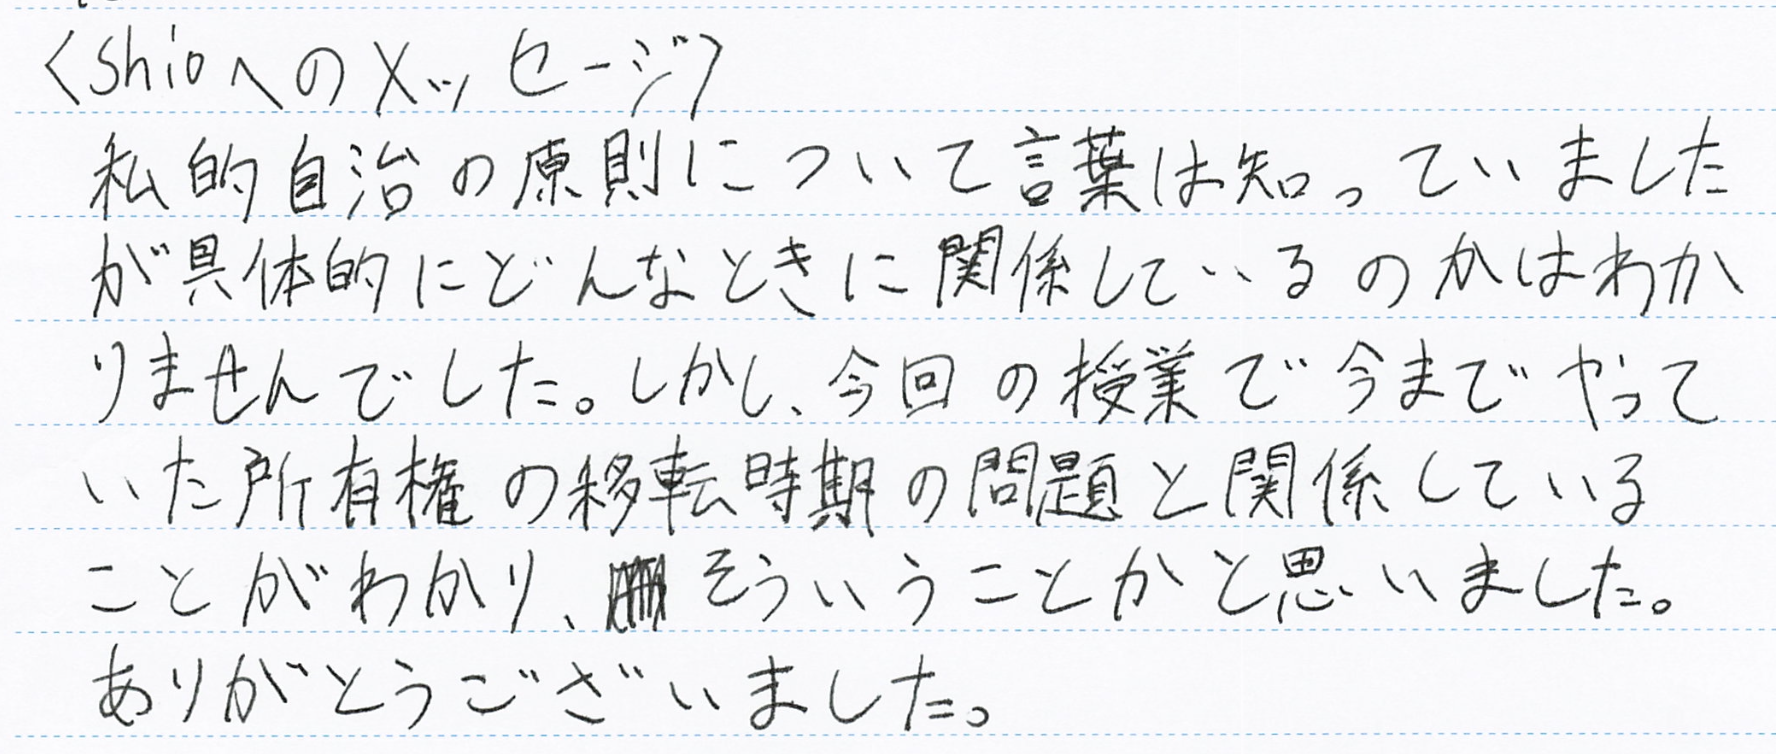 〈Shioへのメッセージ〉
私的自治の原則について言葉は知っていました
が具体的にどんなときに関係しているのかはわか
りませんでした。しかし、今回の授業で今までやって
いた所有権の移転時期の問題と関係している
ことがわかり、そういうことかと思いました。
ありがとうございました。